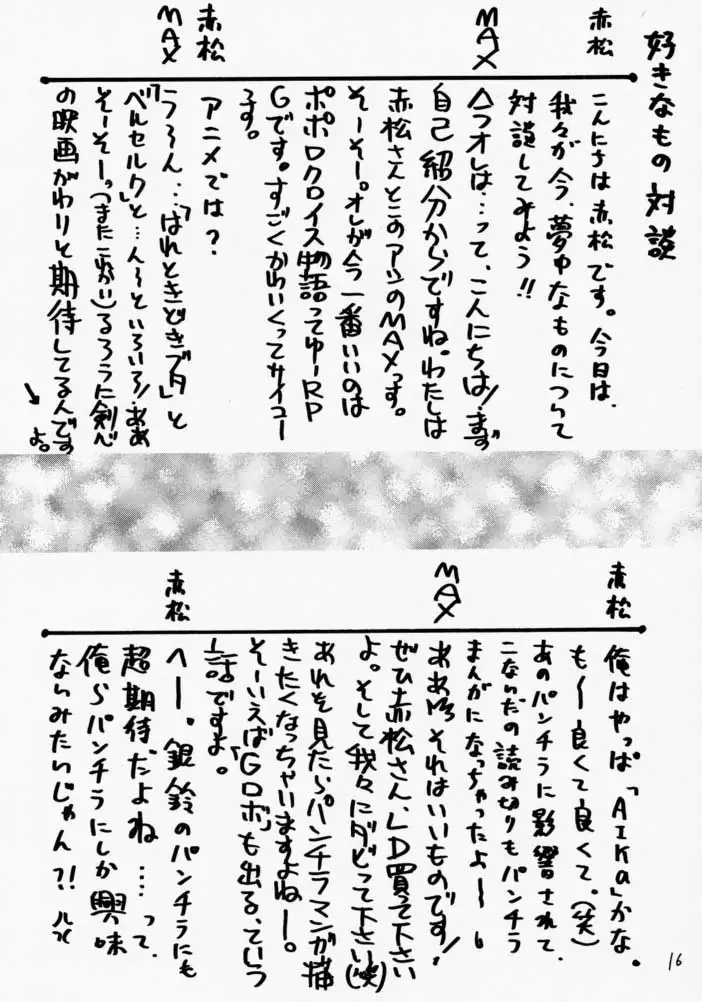 好きなもの対談
赤松
こんにちは赤松です。今日は、
我々が今、夢中なものについて
対談してみよう!!
MAX
△つオレは…って、こんにちは!まず
自己紹分からですね。わたしは
赤松さんとこのアシのMAXっす。
そーそー。オレが今一番いいのは
ポポロクロイス物語ってゆーRP
Gです。すごくかわいくってサイコー
です。
赤松
アニメでは?
MAX
う〜ん…「はれときどきブタ」と
「ベルセルク」と…ん〜といろいろ!ああ
そーそーっ(またこれかい)るろうに剣心
の映画がわりと期待してるんです
よ。
赤松
俺はやっぱ「AIKa」かな。
も〜良くて良くて。(笑)
あのパンチラに影響されて、
こないだの読み切りもパンチラ
まんがになっちゃったよ〜
MAX
ああ それはいいものです!
ぜひ赤松さん、LD買って下さい
よ。そして我々にダビって下さい(笑)
あれを見たらパンチラマンガ描
きたくなっちゃいますよねー。
そーいえば「Gロボ」も出る、ていう
話ですよ。
赤松
へー。銀鈴のパンチラにも
超期待だよね……って、
俺らパンチラにしか興味
ないみたいじゃん?!
16